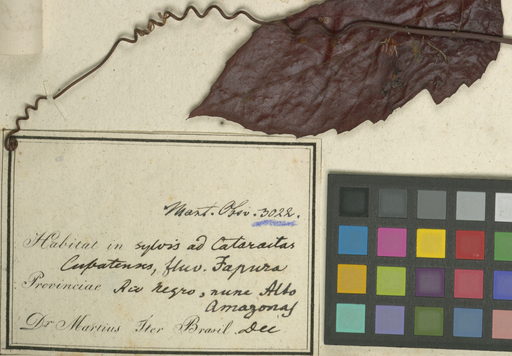 Mart. Obs. 3022.
Habitat in sylvis ad Cataractas
Cupatenses, fluv. Japura
Provinciae Rio Negro, nunc Alto
Amazonas
Dr Martius Iter Brasil. Dec